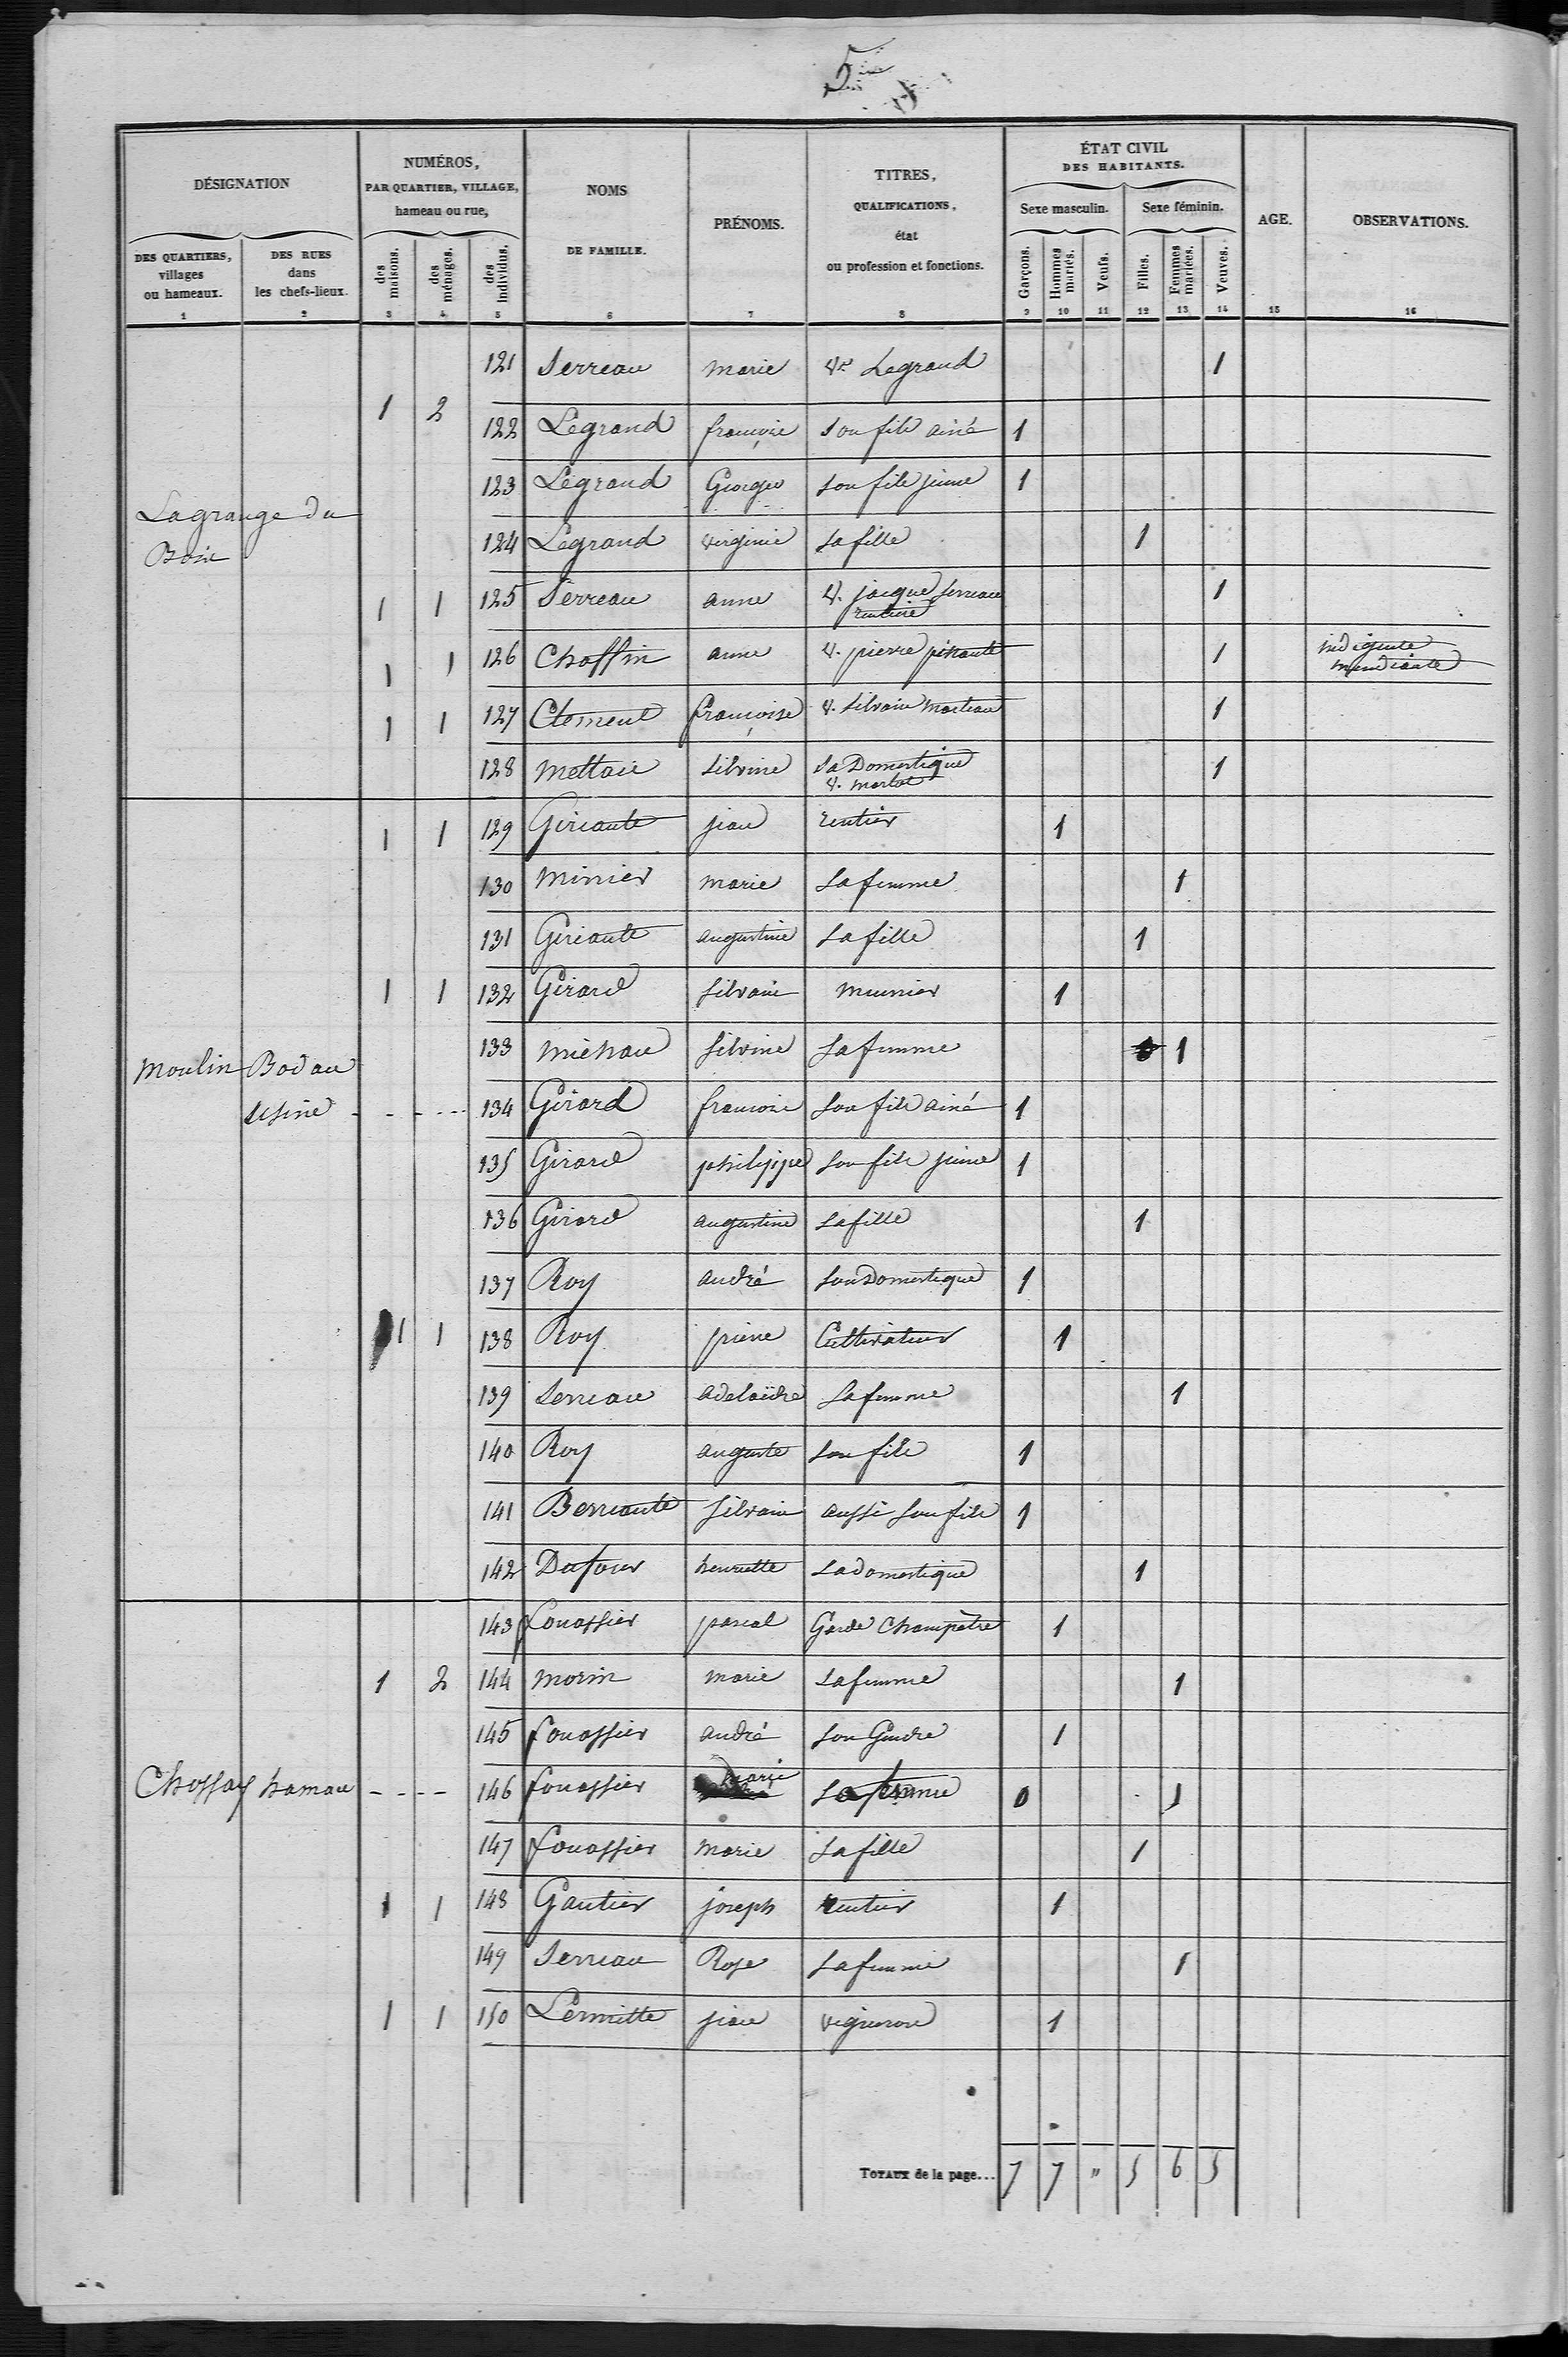 5me
DÉSIGNATION
NUMÉROS,
PAR QUARTIER, VILLAGE,
hameau ou rue,
NOMS
DE FAMILLE.
PRÉNOMS.
TITRES,
QUALIFICATIONS,
état
ou profession et fonctions.
ÉTAT CIVIL
DES HABITANTS.
Sexe masculin. Sexe féminin.
AGE.
OBSERVATIONS.
DES QUARTIERS,
villages
ou hameaux.
DES RUES
dans
les chefs-lieux.
des maisons.
des ménages.
des Individus.
Garçons.
Hommes mariés.
Veufs.
Filles.
Femmes mariées.
Veuves.
1 2 3 4 5 6 7 8 9 10 11 12 13 14 15 16
121 Serreau marie Ve Legrand 1
1 2
122 Legrand françoie son fils ainé 1
123 Legrand Georges son fils jeune 1
Lagrange du
Bois
124 Legrand virginie sa fille 1
1 1 125 Serreau anne V. jacque Serreau 1
rentière
1 1 126 Choffin anne V. pierre pinault 1 indigente
mendiante
1 1 127 Clement françoise V. Silvain Marteau 1
128 mettais Silvine Sa Domestique 1
V. marlot
1 1 129 Girault jean rentier 1
130 minier marie Sa femme 1
131 Girault augustine Sa fille 1
1 1 132 Girard Silvain meunier 1
133 miénau Silvine Sa femme 1
Moulin Bodau
Usine - - - - - 134 Girard francoie Son fils ainé 1
135 Girard philippe Son fils jeune 1
136 Girard augustine Sa fille 1
137 Roy andré Son Domestique 1
1 1 138 Roy piérre Cultivateur 1
139 Serreau adelaïdre Sa femme 1
140 Roy auguste Son fils 1
141 Berrault Silvain aussi Son fils 1
142 Dufour henriette Sa domestique 1
143 fouassier pascal Garde Champêtre 1
1 2 144 morin marie Sa femme 1
145 fouassier andré Son Gendre 1
Chossay hamau - - - - 146 fouassier marie Sa femme 0 1
147 fouassier marie Sa fille 1
1 1 148 Gautier joseph rentier 1
149 Serreau Rose Sa femme 1
1 1 150 Lermitte jean vigneron 1
TOTAUX de la page... 7 7 " 5 6 5